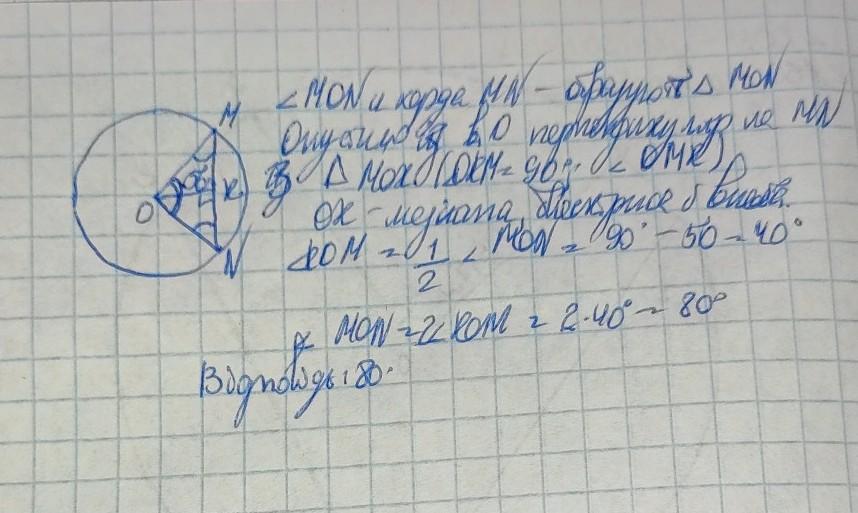 M
O
K
N
∠MON и хорда MN – образуют △ MON
Опустим из т.О перпендикуляр на MN
В △ MOK (∠OKM = 90°; ∠ OMK)
OK - медиана, биссектриса и высота.
∠KOM = 1/2 ∠ MON = 90° - 50 = 40°
∠ MON = 2∠KOM = 2·40° = 80°
Відповідь: 80.